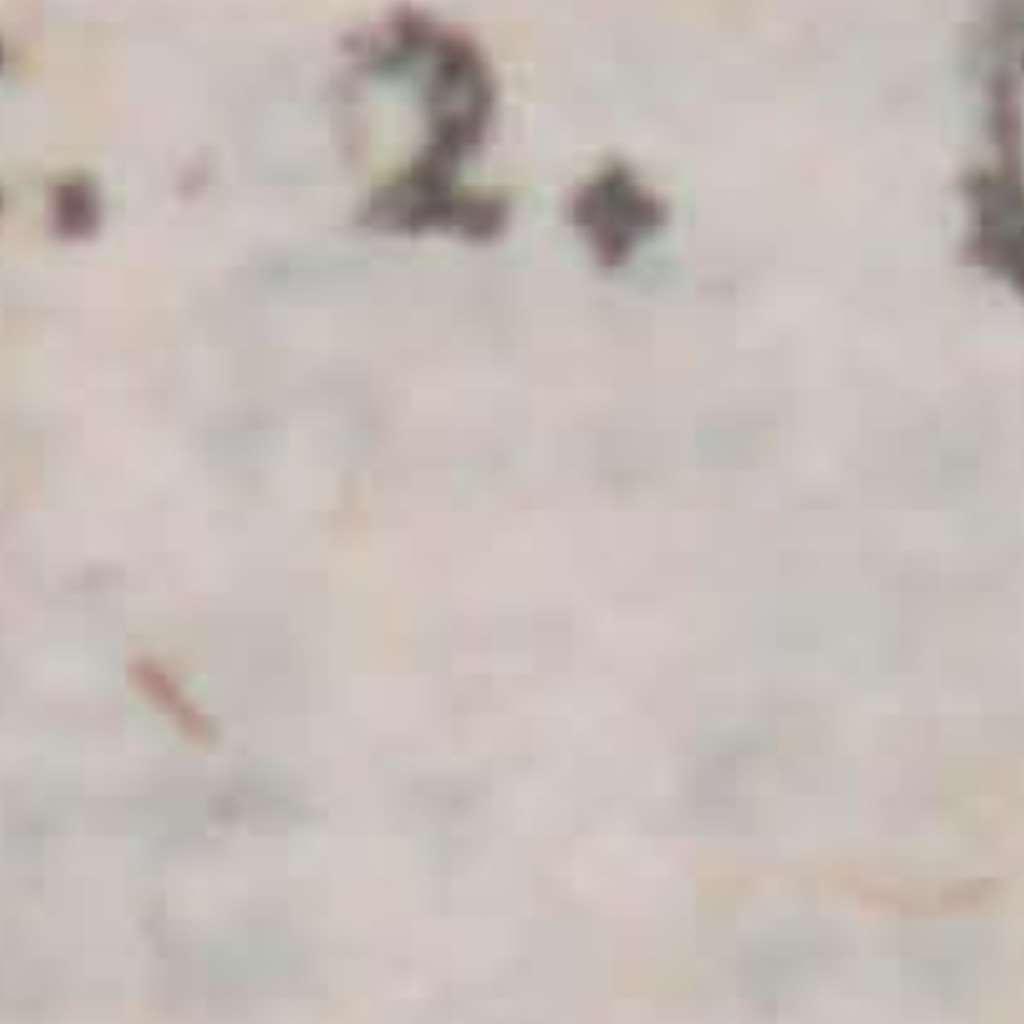 . 2.